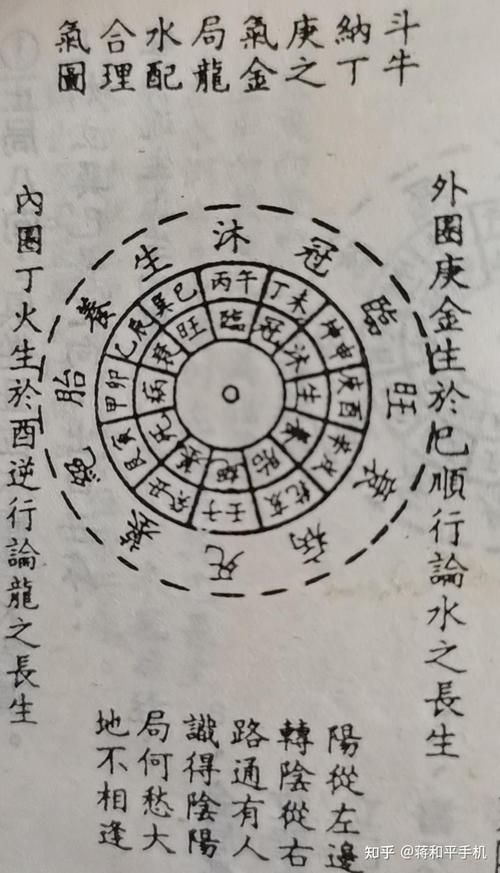 斗牛
納丁
庚之
氣金
局龍
水配
合理
氣圖
外圈庚金生於巳順行論水之長生
生沐冠臨旺衰病死墓絕胎養
巽巳 丙午 丁未 坤申 庚酉 辛戌 乾亥 壬子 癸丑 艮寅 甲卯 乙辰
旺臨冠沐生養胎絕墓死病衰
內圈丁火生於酉逆行論龍之長生
陽從左邊
轉陰從右
路通有人
識得陰陽
局何愁大
地不相逢
知乎 @蒋和平手机